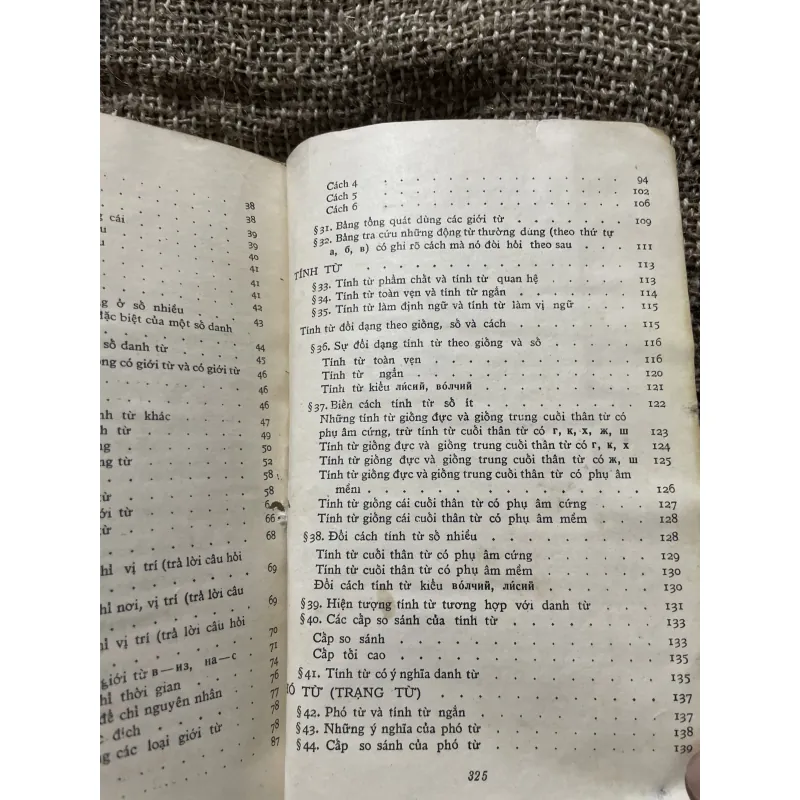 38
cái 38
39
39
40
41
41
ở số nhiều 41
đặc biệt của một số danh 43
44
số danh từ 45
có giới từ và có giới từ 46
46
từ khác 47
từ 49
50
từ 52
58
từ 58
từ 6
từ 66
68
vị trí (trả lời câu hỏi 69
nơi, vị trí (trả lời câu 69
vị trí (trả lời câu hỏi 70
71
giới từ в—из, на—с 74
chỉ thời gian 76
để chỉ nguyên nhân 77
đích 78
các loại giới từ 78
87
Cách 4 . . . 94
Cách 5 . . . 102
Cách 6 . . . 106
§31. Bảng tổng quát dùng các giới từ . . . 109
§32. Bảng tra cứu những động từ thường dùng (theo thứ tự
а, б, в) có ghi rõ cách mà nó đòi hỏi theo sau . . . 111
TÍNH TỪ . . . 113
§33. Tính từ phẩm chất và tính từ quan hệ . . . 113
§34. Tính từ toàn vẹn và tính từ ngắn . . . 114
§35. Tính từ làm định ngữ và tính từ làm vị ngữ . . . 115
Tính từ đổi dạng theo giống, số và cách . . . 115
§36. Sự đổi dạng tính từ theo giống và số . . . 116
Tính từ toàn vẹn . . . 116
Tính từ ngắn . . . 120
Tính từ kiểu ли́сий, во́лчий . . . 121
§37. Biến cách tính từ số ít . . . 122
Những tính từ giống đực và giống trung cuối thân từ có
phụ âm cứng, trừ tính từ cuối thân từ có г, к, х, ж, ш 123
Tính từ giống đực và giống trung cuối thân từ có г, к, х 124
Tính từ giống đực và giống trung cuối thân từ có ж, ш 125
Tính từ giống đực và giống trung cuối thân từ có phụ âm
mềm . . . 126
Tính từ giống cái cuối thân từ có phụ âm cứng . . . 127
Tính từ giống cái cuối thân từ có phụ âm mềm . . . 128
§38. Đổi cách tính từ số nhiều . . . 128
Tính từ cuối thân từ có phụ âm cứng . . . 129
Tính từ cuối thân từ có phụ âm mềm . . . 130
Đổi cách tính từ kiểu во́лчий, ли́сий . . . 130
§39. Hiện tượng tính từ tương hợp với danh từ . . . 131
§40. Các cấp so sánh của tính từ . . . 133
Cấp so sánh . . . 133
Cấp tối cao . . . 135
§41. Tính từ có ý nghĩa danh từ . . . 135
Ó TỪ (TRẠNG TỪ) . . . 137
§42. Phó từ và tính từ ngắn . . . 137
§43. Những ý nghĩa của phó từ . . . 138
§44. Cấp so sánh của phó từ . . . 139
325